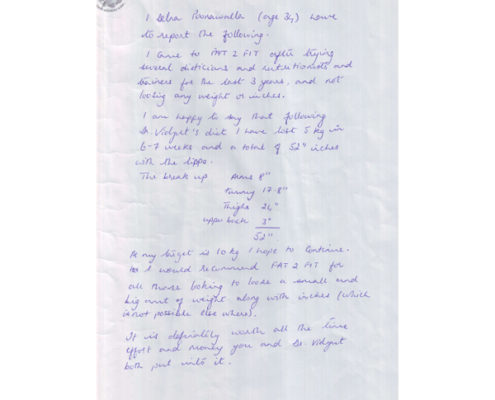 I Delna Poonawalla (age 34) have
to report the following.
I came to FAT 2 FIT after trying
several dieticians and nutritionists and
trainers for the last 3 years, and not
loosing any weight or inches.
I am happy to say that following
Dr. Vidyut's diet I have lost 5 kg in
6-7 weeks and a total of 52" inches
with the lippo.
The break up Arms 8"
Tummy 17.8"
Thighs 24"
upper back 3"
52"
As my target is 10 kg I hope to continue.
I would recommend FAT 2 FIT for
all those looking to loose a small and
big amt of weight along with inches (which
is not possible else where).
It is definitely worth all the time
effort and money you and Dr. Vidyut
both put into it.